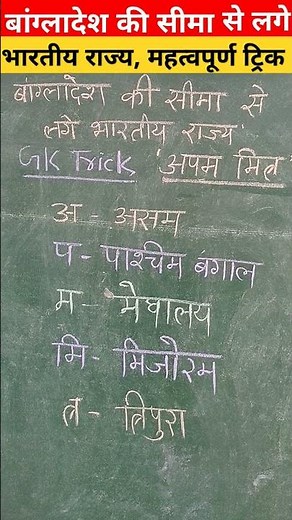 बांग्लादेश की सीमा से लगे
भारतीय राज्य, महत्वपूर्ण ट्रिक
बांग्लादेश की सीमा से
लगे भारतीय राज्य'
GK Trick 'अपम मित्र'
अ - असम
प - पाश्चिम बंगाल
म - मेघालय
मि - मिजोरम
त्र - त्रिपुरा